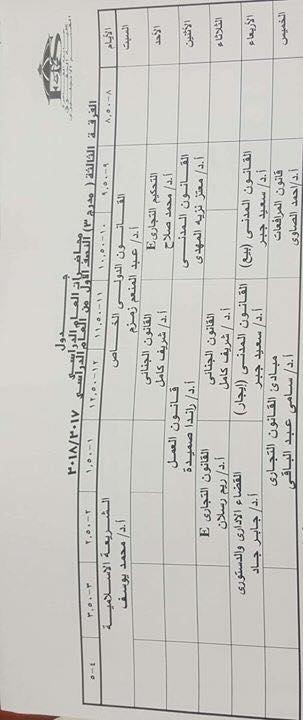 جدول
محاضرات العام الدراسى ٢٠١٨/٢٠١٧
الفرقة الثالثة (مدرج ٣) النصف الأول من العام الدراسى
الأيام ٨-٨,٥٠ ٩-٩,٥٠ ١٠-١٠,٥٠ ١١-١١,٥٠ ١٢-١٢,٥٠ ١-١,٥٠ ٢-٢,٥٠ ٣-٣,٥٠ ٤-٥
السبت
القانون الدولى الخاص
أ.د/ عبد المنعم زمزم
الشريعة الاسلامية
أ.د/ محمد يوسف
الأحد
التحكيم التجارى E
أ.د/ محمد صلاح
القانون الجنائى
أ.د/ شريف كامل
الأثنين
القانون المدنى
أ.د/ معتز نزيه المهدى
قانون العمل
أ.د/ راندا صميدة
الثلاثاء
القانون الجنائى
أ.د/ شريف كامل
القانون التجارى E
أ.د/ ريم رسلان
الأربعاء
القانون المدنى (بيع)
أ.د/ سعيد جبر
القانون المدنى (إيجار)
أ.د/ سعيد جبر
القضاء الادارى والدستورى
أ.د/ جابر جاد
الخميس
قانون المرافعات
أ.د/ احمد الصاوى
مبادئ القانون التجارى
أ.د/ سامى عبد الباقى